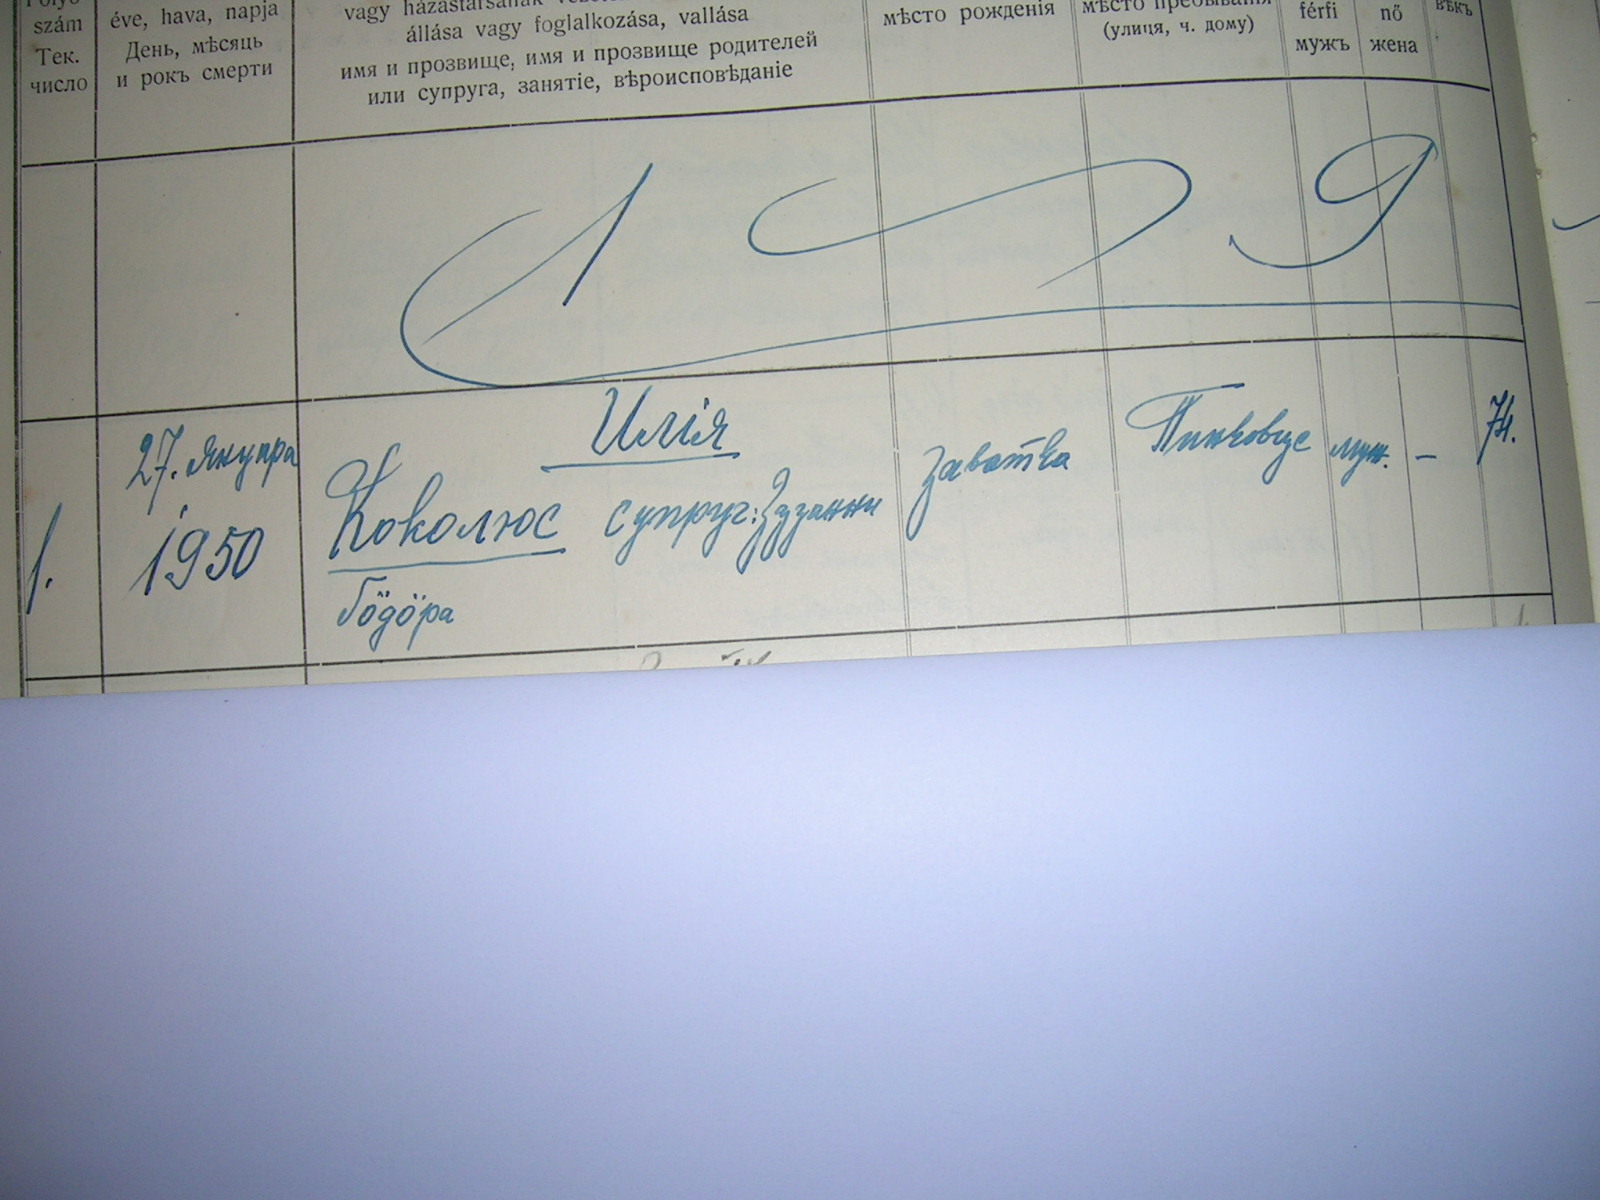 szám
Тек.
число
éve, hava, napja
День, мѣсяць
и рокъ смерти
állása vagy foglalkozása, vallása
имя и прозвище, имя и прозвище родителей
или супруга, занятіе, вѣроисповѣданіе
мѣсто рожденія
мѣсто пребыванія
(улиця, ч. дому)
férfi
мужъ
nő
жена
вѣкъ
1.
27. януара
1950
Илія
Коколюс супруг: Зузанни
Гӧдӧра
Заватка
Пинковце
муж.
–
74.